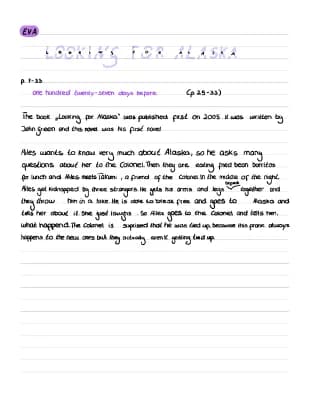 EVA
LOOKING FOR ALASKA
p. 7-33
one hundred twenty-seven days before (p 25-33)
The book „Looking for Alaska" was published first on 2005. It was written by
John Green and this novel was his first novel
Miles wants to know very much about Alaska, so he asks many
questions about her to the Colonel. Then they are eating fried bean borritos
for lunch and Miles meets Takumi, a friend of the Colonel. In the middle of the night
Miles get kidnapped by three strangers. He gets his arms and legs together and
they throw him in a lake. He is able to break free and goes to Alaska and
tells her about it. She just laughs. So Miles goes to the Colonel and tells him,
what happend. The Colonel is suprised that he was tied up, because this prank always
happens to the new ones but they actually aren't getting tied up.